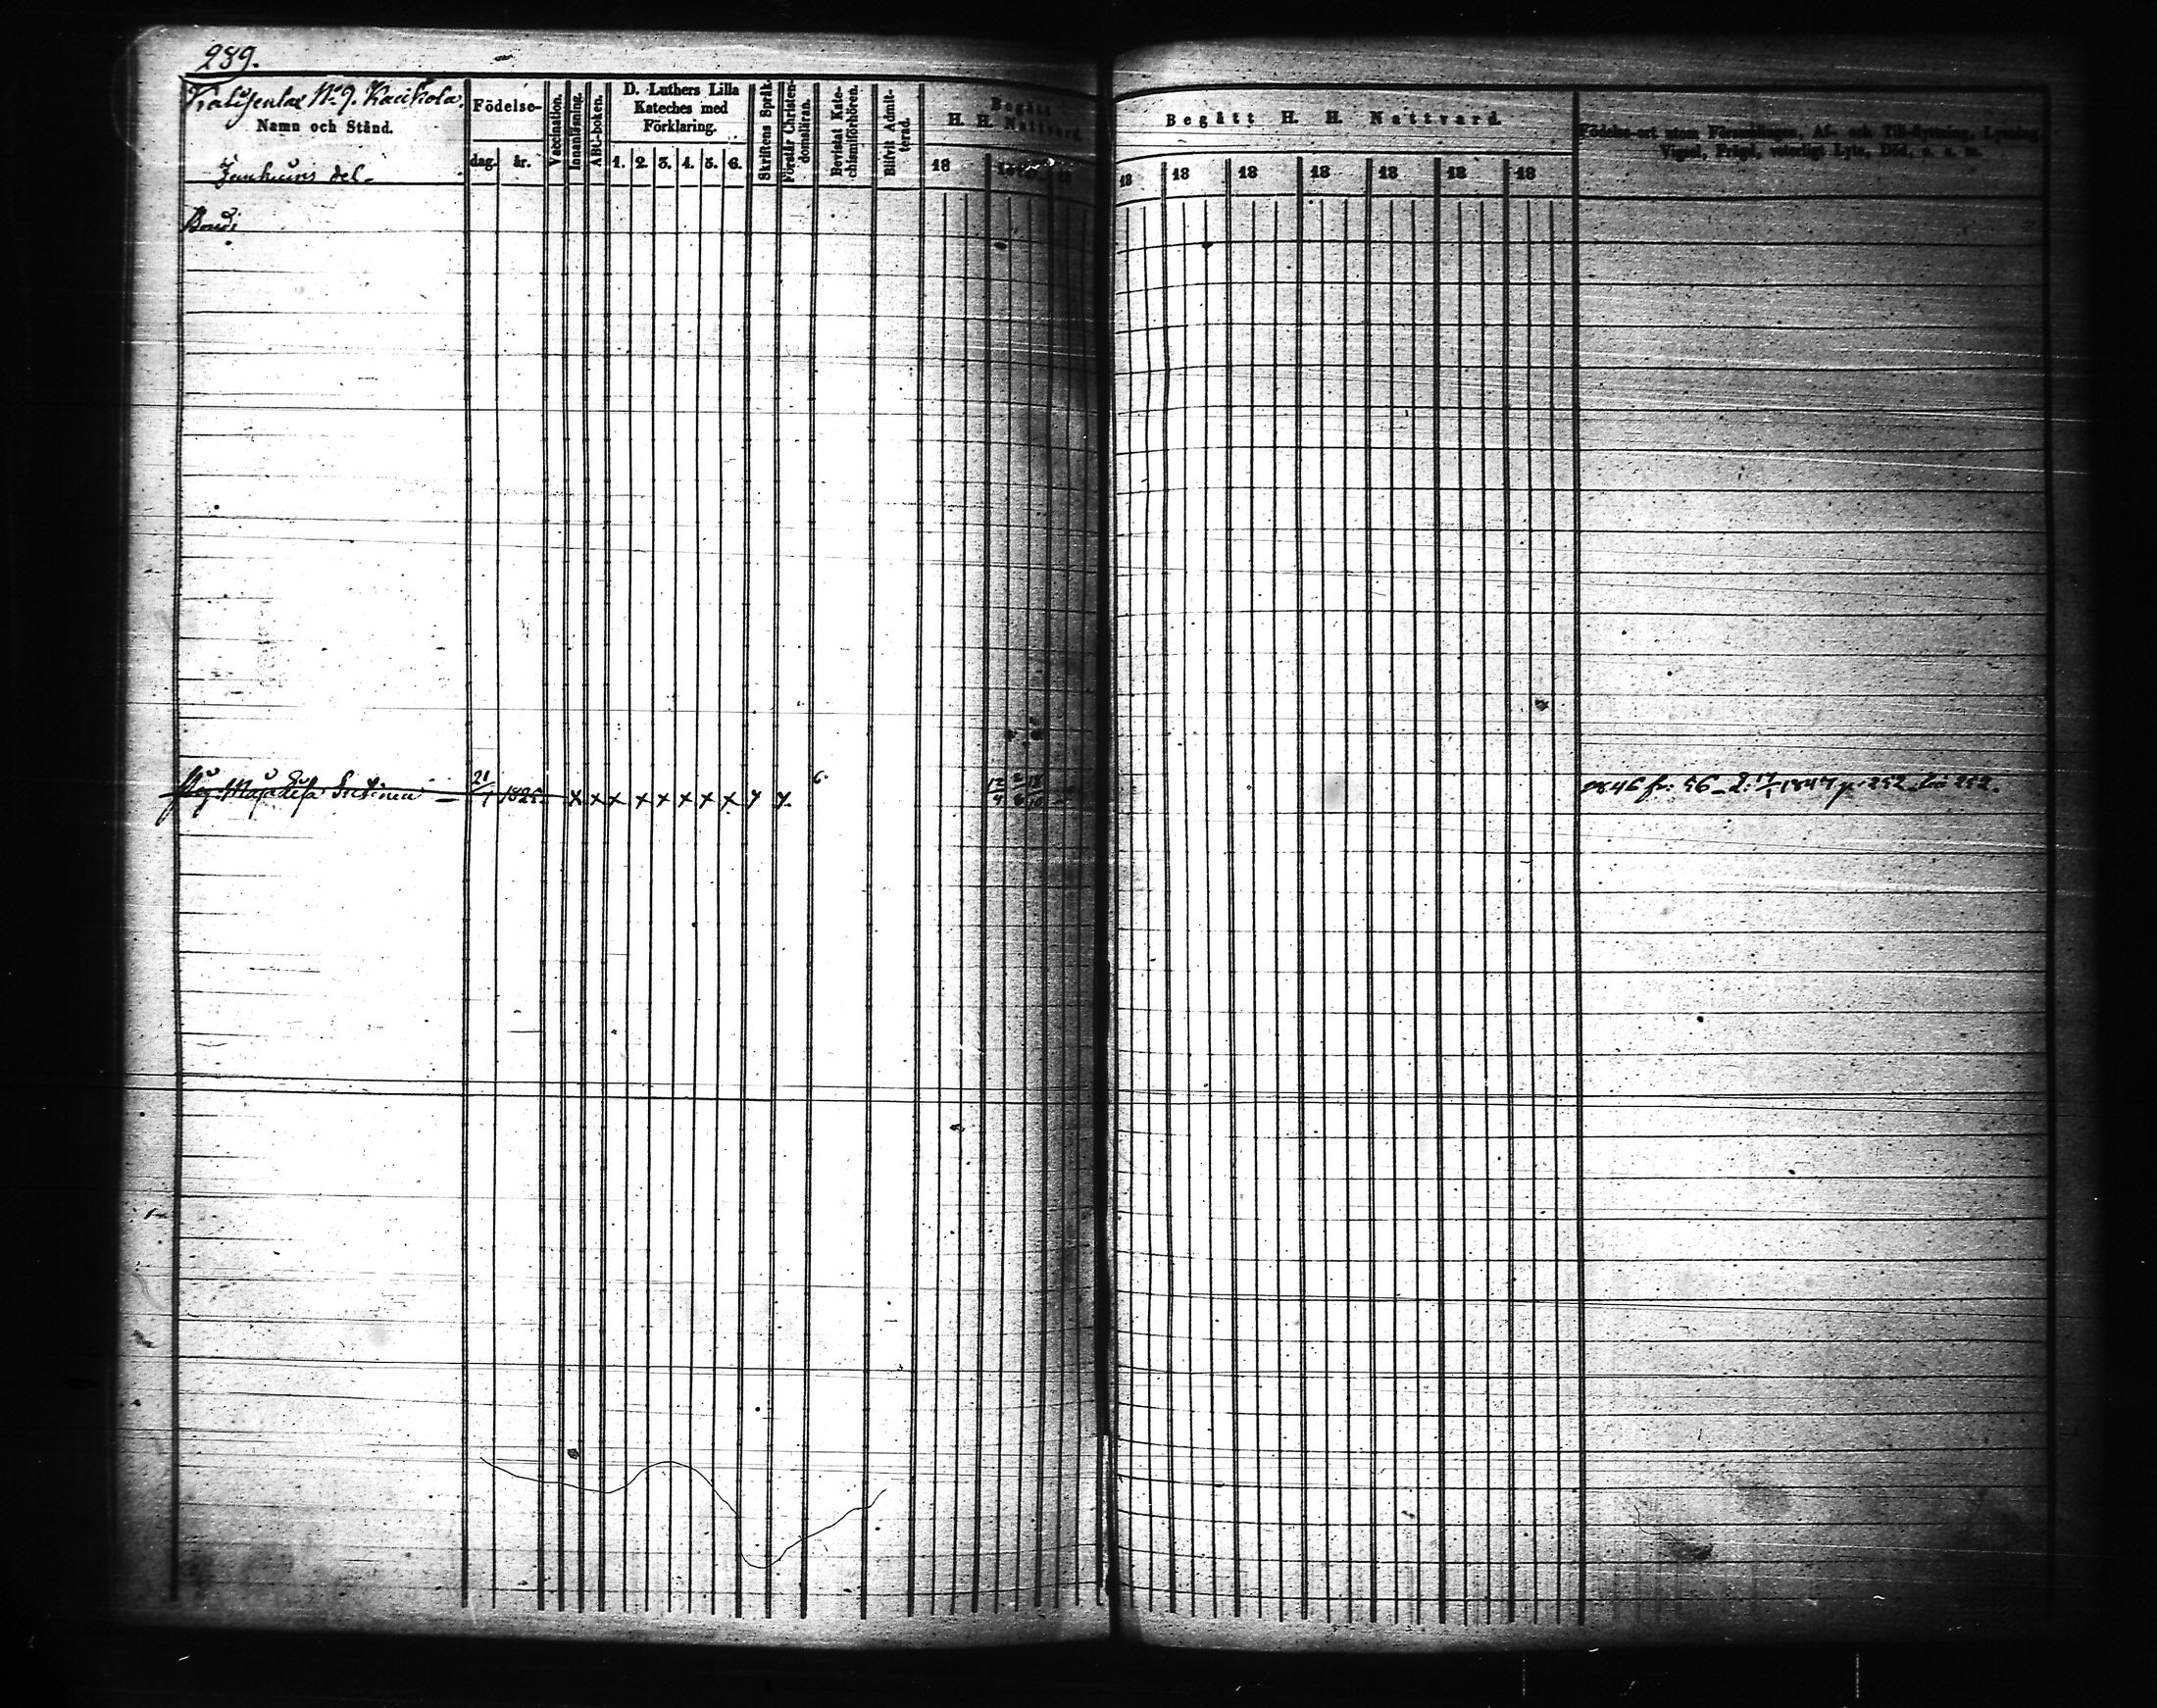 289.
N:o 9. Kauikola
Namn och Stånd.
del.
Födelse-
dag.
år.
Vaccination.
Innanläsning.
ABC-boken.
D. Luthers Lilla
Kateches med
Förklaring.
1. 2. 3. 4. 5. 6.
Skriftens Språk.
Förstår Christen-
domsläran.
Bevistat Kate-
chismiförhören.
Blifvit Admit-
terad.
Begått
H. H. Nattvard.
18
Begått H. H. Nattvard.
18 18 18 18 18 18 18
Födelse-ort utom Församlingen, Af- och Till-flyttning, Lysning,
Vigsel, Frägd, veterligt Lyte, Död, o. s. m.
Bond:
Pig. Maja Lisa 21/1 1825. x x x x x x x x y y. 6.
12/4
1846 fr: 56 - 2: 17/1 1847 p: 252